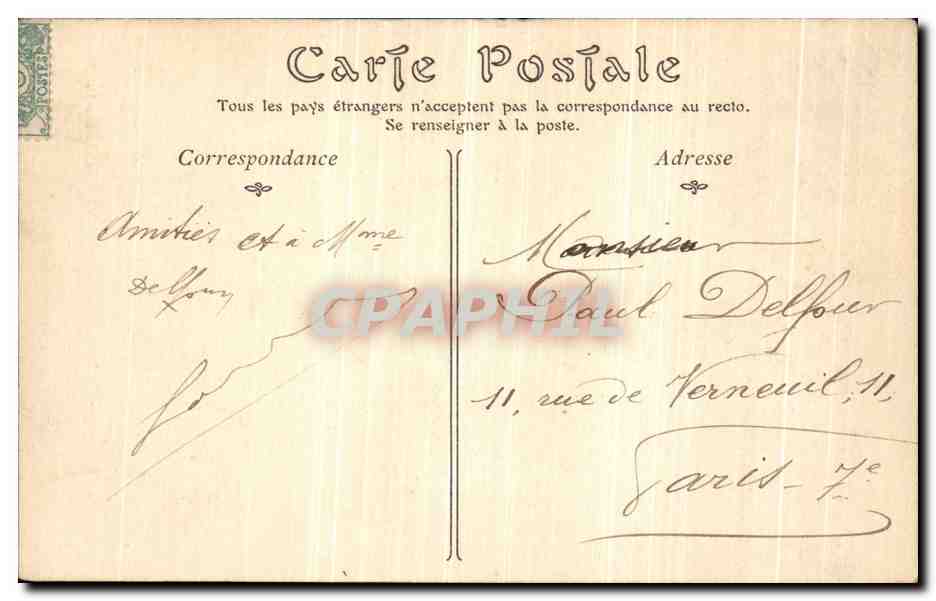 POSTES
Carte Postale
Tous les pays étrangers n'acceptent pas la correspondance au recto.
Se renseigner à la poste.
Correspondance
Amitiés et à Mme
Delfour
Adresse
Monsieur
Paul Delfour
11, rue de Verneuil, 11,
Paris - 7e
CPAPHIL